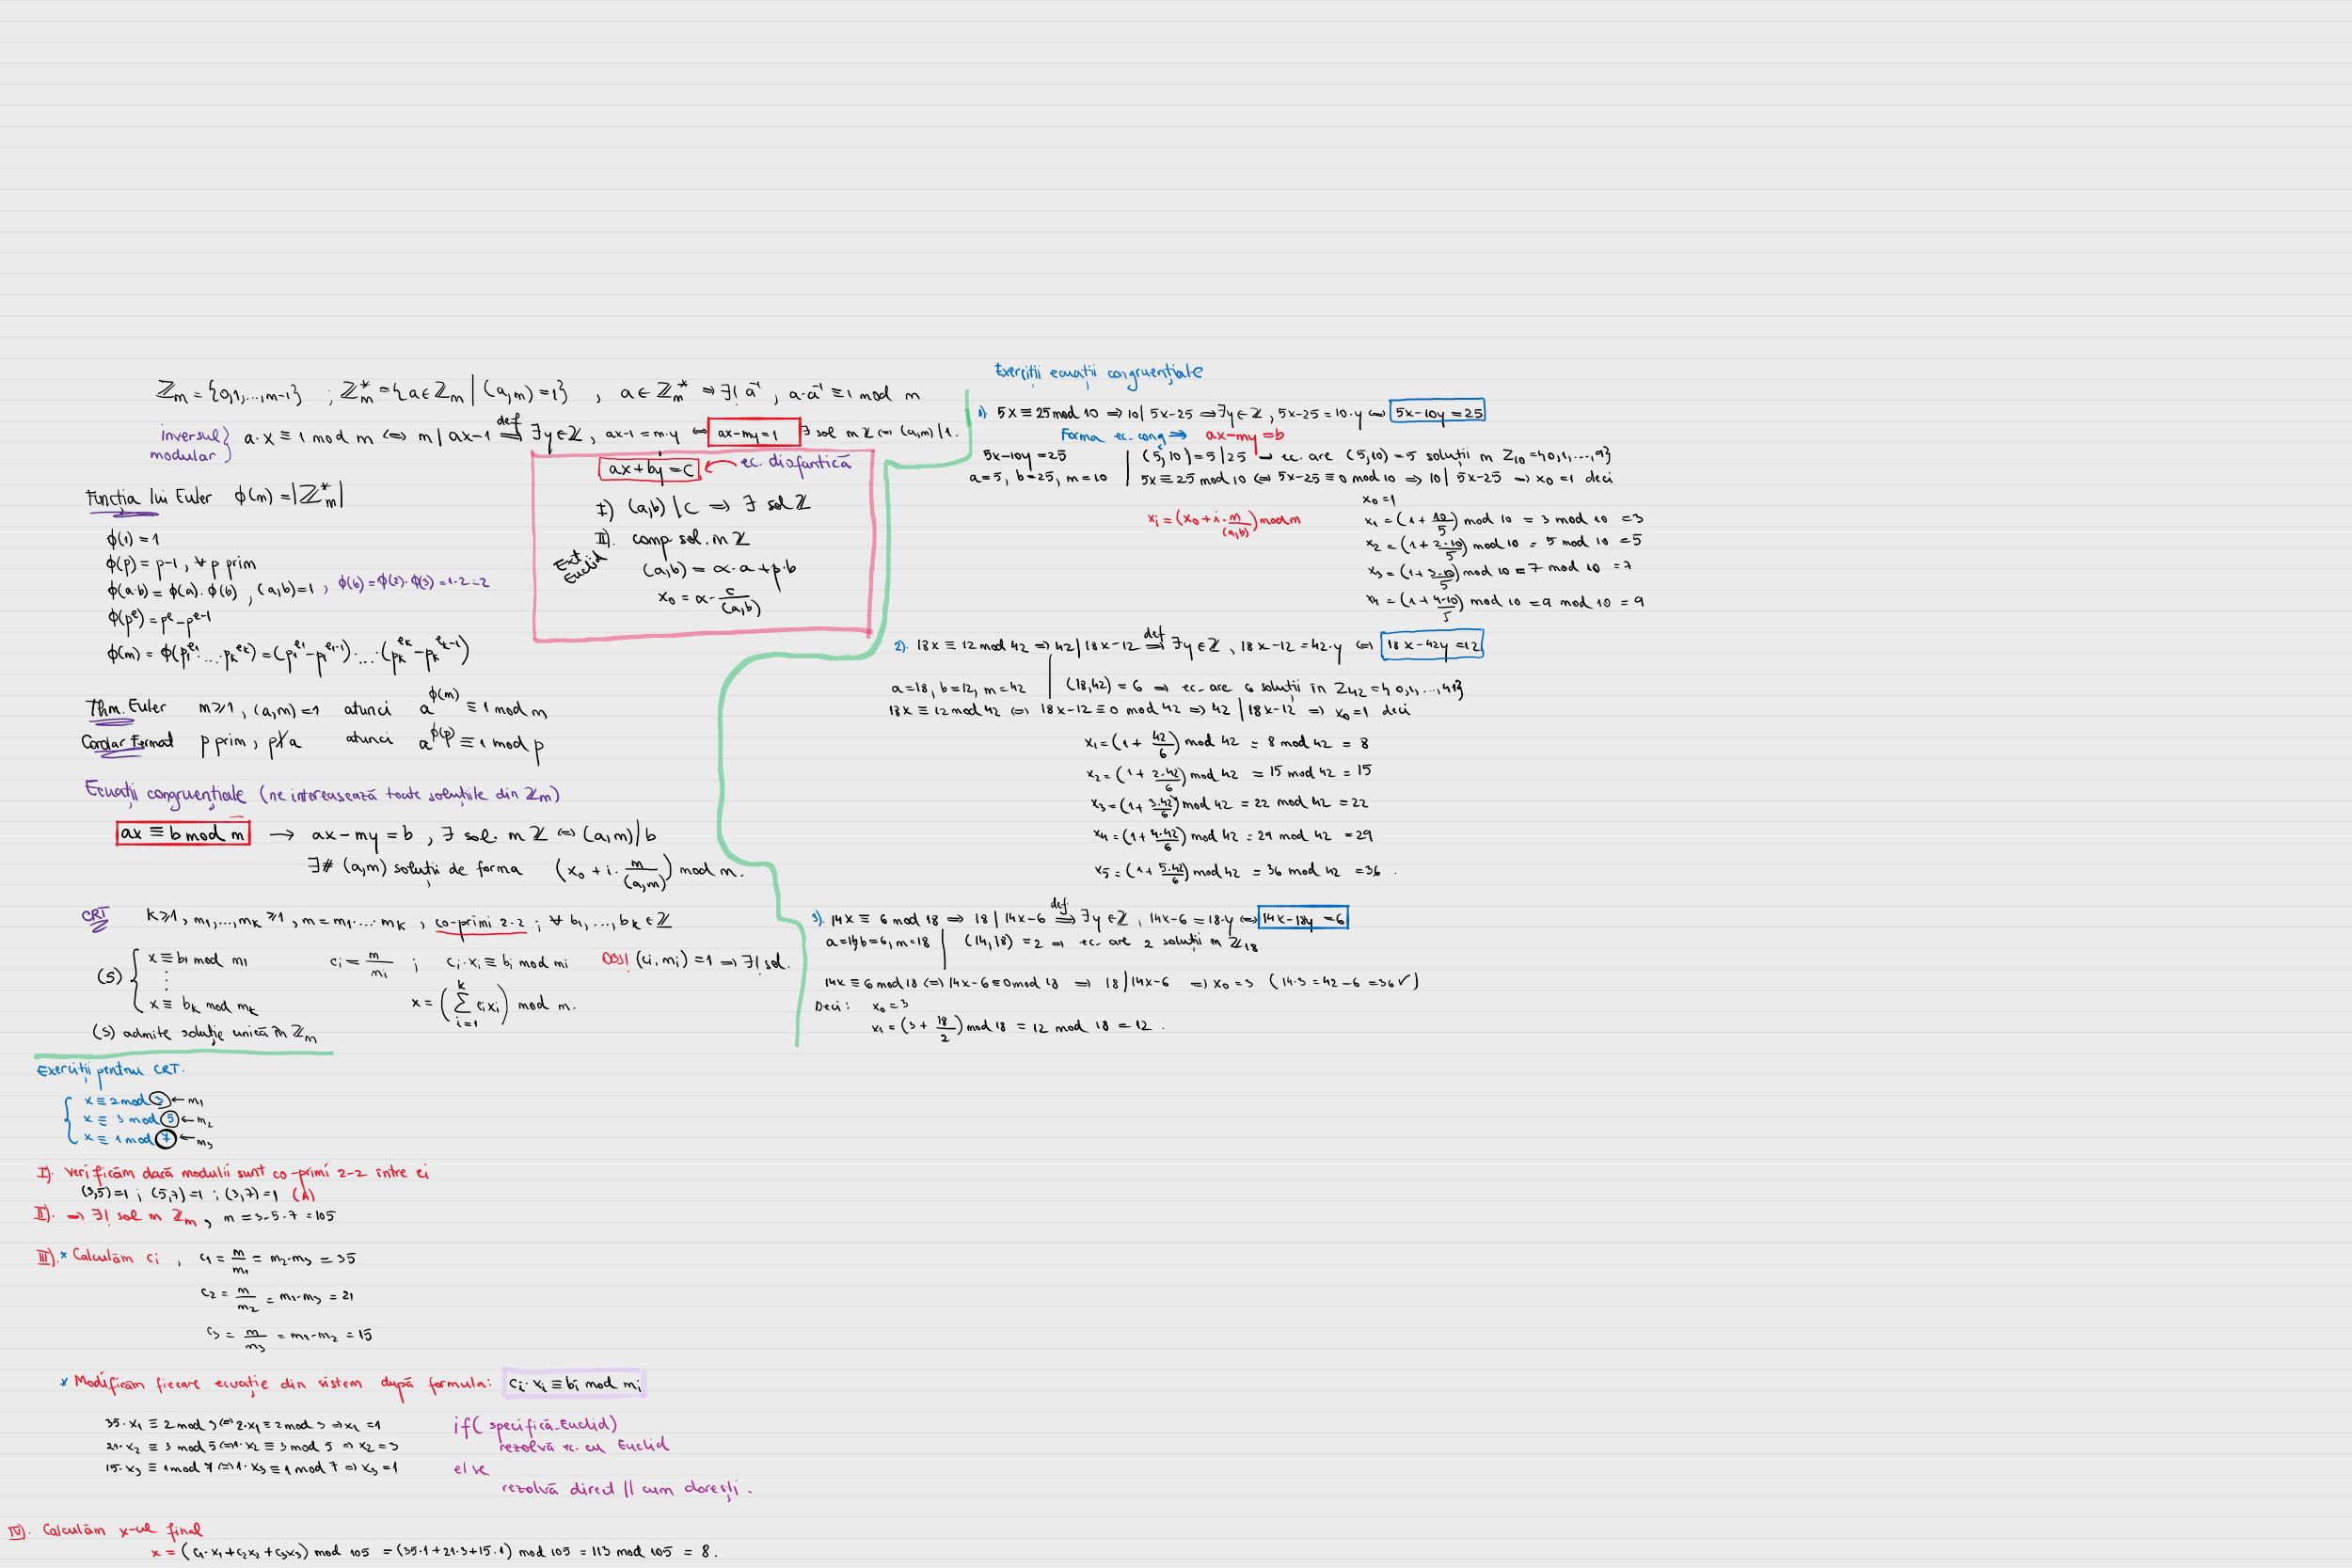 ℤm = {0,1,...,m-1} ; ℤm* = {a ∈ ℤm | (a,m) = 1} , a ∈ ℤm* ⇒ ∃! a⁻¹ , a·a⁻¹ ≡ 1 mod m
inversul modular } a·x ≡ 1 mod m ⇔ m | ax-1 ⇔def ∃y∈ℤ, ax-1 = m·y ⇔ ax-my=1 ∃ sol în ℤ ⇔ (a,m)|1.
ax+by=c ← ec. diofantică
I) (a,b) | c ⇒ ∃ sol ℤ
II). comp. sol. în ℤ
Ext Euclid
(a,b) = α·a + β·b
x₀ = α · c/(a,b)
Funcția lui Euler ϕ(m) = |ℤm*|
ϕ(1) = 1
ϕ(p) = p-1, ∀ p prim
ϕ(a·b) = ϕ(a)·ϕ(b), (a,b)=1 , ϕ(6) = ϕ(2)·ϕ(3) = 1·2 = 2
ϕ(pᵉ) = pᵉ - pᵉ⁻¹
ϕ(m) = ϕ(p₁^e₁ · ... · pₖ^eₖ) = (p₁^e₁ - p₁^(e₁-1)) · ... · (pₖ^eₖ - pₖ^(eₖ-1))
Thm. Euler m ≥ 1, (a,m)=1 atunci a^ϕ(m) ≡ 1 mod m
Corolar Fermat p prim, p∤a atunci a^ϕ(p) ≡ 1 mod p
Ecuații congruențiale (ne interesează toate soluțiile din ℤm)
ax ≡ b mod m → ax-my = b , ∃ sol. în ℤ ⇔ (a,m)|b
∃ # (a,m) soluții de forma (x₀ + i · m/(a,m)) mod m.
CRT k≥1, m₁,...,mₖ ≥1, m = m₁·...·mₖ , co-primi 2-2 ; ∀ b₁,...,bₖ ∈ ℤ
(S) { x ≡ b₁ mod m₁
⋮
x ≡ bₖ mod mₖ
cᵢ = m/mᵢ ; cᵢ·xᵢ ≡ bᵢ mod mᵢ OBS! (cᵢ, mᵢ) = 1 ⇒ ∃! sol.
x = (∑ᵢ₌₁ᵏ cᵢxᵢ) mod m.
(S) admite soluție unică în ℤm
Exerciții pentru CRT.
{ x ≡ 2 mod 3 ← m₁
x ≡ 3 mod 5 ← m₂
x ≡ 1 mod 7 ← m₃
I). Verificăm dacă modulii sunt co-primi 2-2 între ei
(3,5)=1 ; (5,7)=1 ; (3,7)=1 (A)
II). ⇒ ∃! sol în ℤm , m = 3·5·7 = 105
III). * Calculăm cᵢ , c₁ = m/m₁ = m₂·m₃ = 35
c₂ = m/m₂ = m₁·m₃ = 21
c₃ = m/m₃ = m₁·m₂ = 15
* Modificăm fiecare ecuație din sistem după formula: cᵢ·xᵢ ≡ bᵢ mod mᵢ
35·x₁ ≡ 2 mod 3 ⇔ 2·x₁ ≡ 2 mod 3 ⇒ x₁ = 1
21·x₂ ≡ 3 mod 5 ⇔ 1·x₂ ≡ 3 mod 5 ⇒ x₂ = 3
15·x₃ ≡ 1 mod 7 ⇔ 1·x₃ ≡ 1 mod 7 ⇒ x₃ = 1
if( specifică_Euclid)
rezolvă ec. cu Euclid
else
rezolvă direct // cum dorești.
IV). Calculăm x-ul final
x = (c₁·x₁+c₂x₂+c₃x₃) mod 105 = (35·1+21·3+15·1) mod 105 = 113 mod 105 = 8.
Exerciții ecuații congruențiale
1). 5x ≡ 25 mod 10 ⇒ 10 | 5x-25 ⇒ ∃y∈ℤ, 5x-25 = 10·y ⇔ 5x-10y=25
Forma ec. cong ⇒ ax-my=b
5x-10y=25 | (5,10)=5|25 ⇒ ec. are (5,10)=5 soluții în ℤ₁₀={0,1,...,9}
a=5, b=25, m=10 | 5x≡25 mod 10 ⇔ 5x-25≡0 mod 10 ⇒ 10 | 5x-25 ⇒ x₀=1 deci
x₀=1
xᵢ = (x₀+i·m/(a,b)) mod m
x₁ = (1+10/5) mod 10 = 3 mod 10 = 3
x₂ = (1+2·10/5) mod 10 = 5 mod 10 = 5
x₃ = (1+3·10/5) mod 10 = 7 mod 10 = 7
x₄ = (1+4·10/5) mod 10 = 9 mod 10 = 9
2). 18x ≡ 12 mod 42 ⇒ 42 | 18x-12 ⇒def ∃y∈ℤ, 18x-12 = 42·y ⇔ 18x-42y=12
a=18, b=12, m=42 | (18,42)=6 ⇒ ec. are 6 soluții în ℤ₄₂={0,1,...,41}
18x ≡ 12 mod 42 ⇔ 18x-12 ≡ 0 mod 42 ⇒ 42 | 18x-12 ⇒ x₀=1 deci
x₁ = (1+42/6) mod 42 = 8 mod 42 = 8
x₂ = (1+2·42/6) mod 42 = 15 mod 42 = 15
x₃ = (1+3·42/6) mod 42 = 22 mod 42 = 22
x₄ = (1+4·42/6) mod 42 = 29 mod 42 = 29
x₅ = (1+5·42/6) mod 42 = 36 mod 42 = 36.
3). 14x ≡ 6 mod 18 ⇒ 18 | 14x-6 ⇒def ∃y∈ℤ, 14x-6 = 18·y ⇔ 14x-18y=6
a=14, b=6, m=18 | (14,18)=2 ⇒ ec. are 2 soluții în ℤ₁₈
14x ≡ 6 mod 18 ⇔ 14x-6 ≡ 0 mod 18 ⇒ 18 | 14x-6 ⇒ x₀=3 (14·3=42-6=36✓)
Deci: x₀=3
x₁ = (3+18/2) mod 18 = 12 mod 18 = 12.